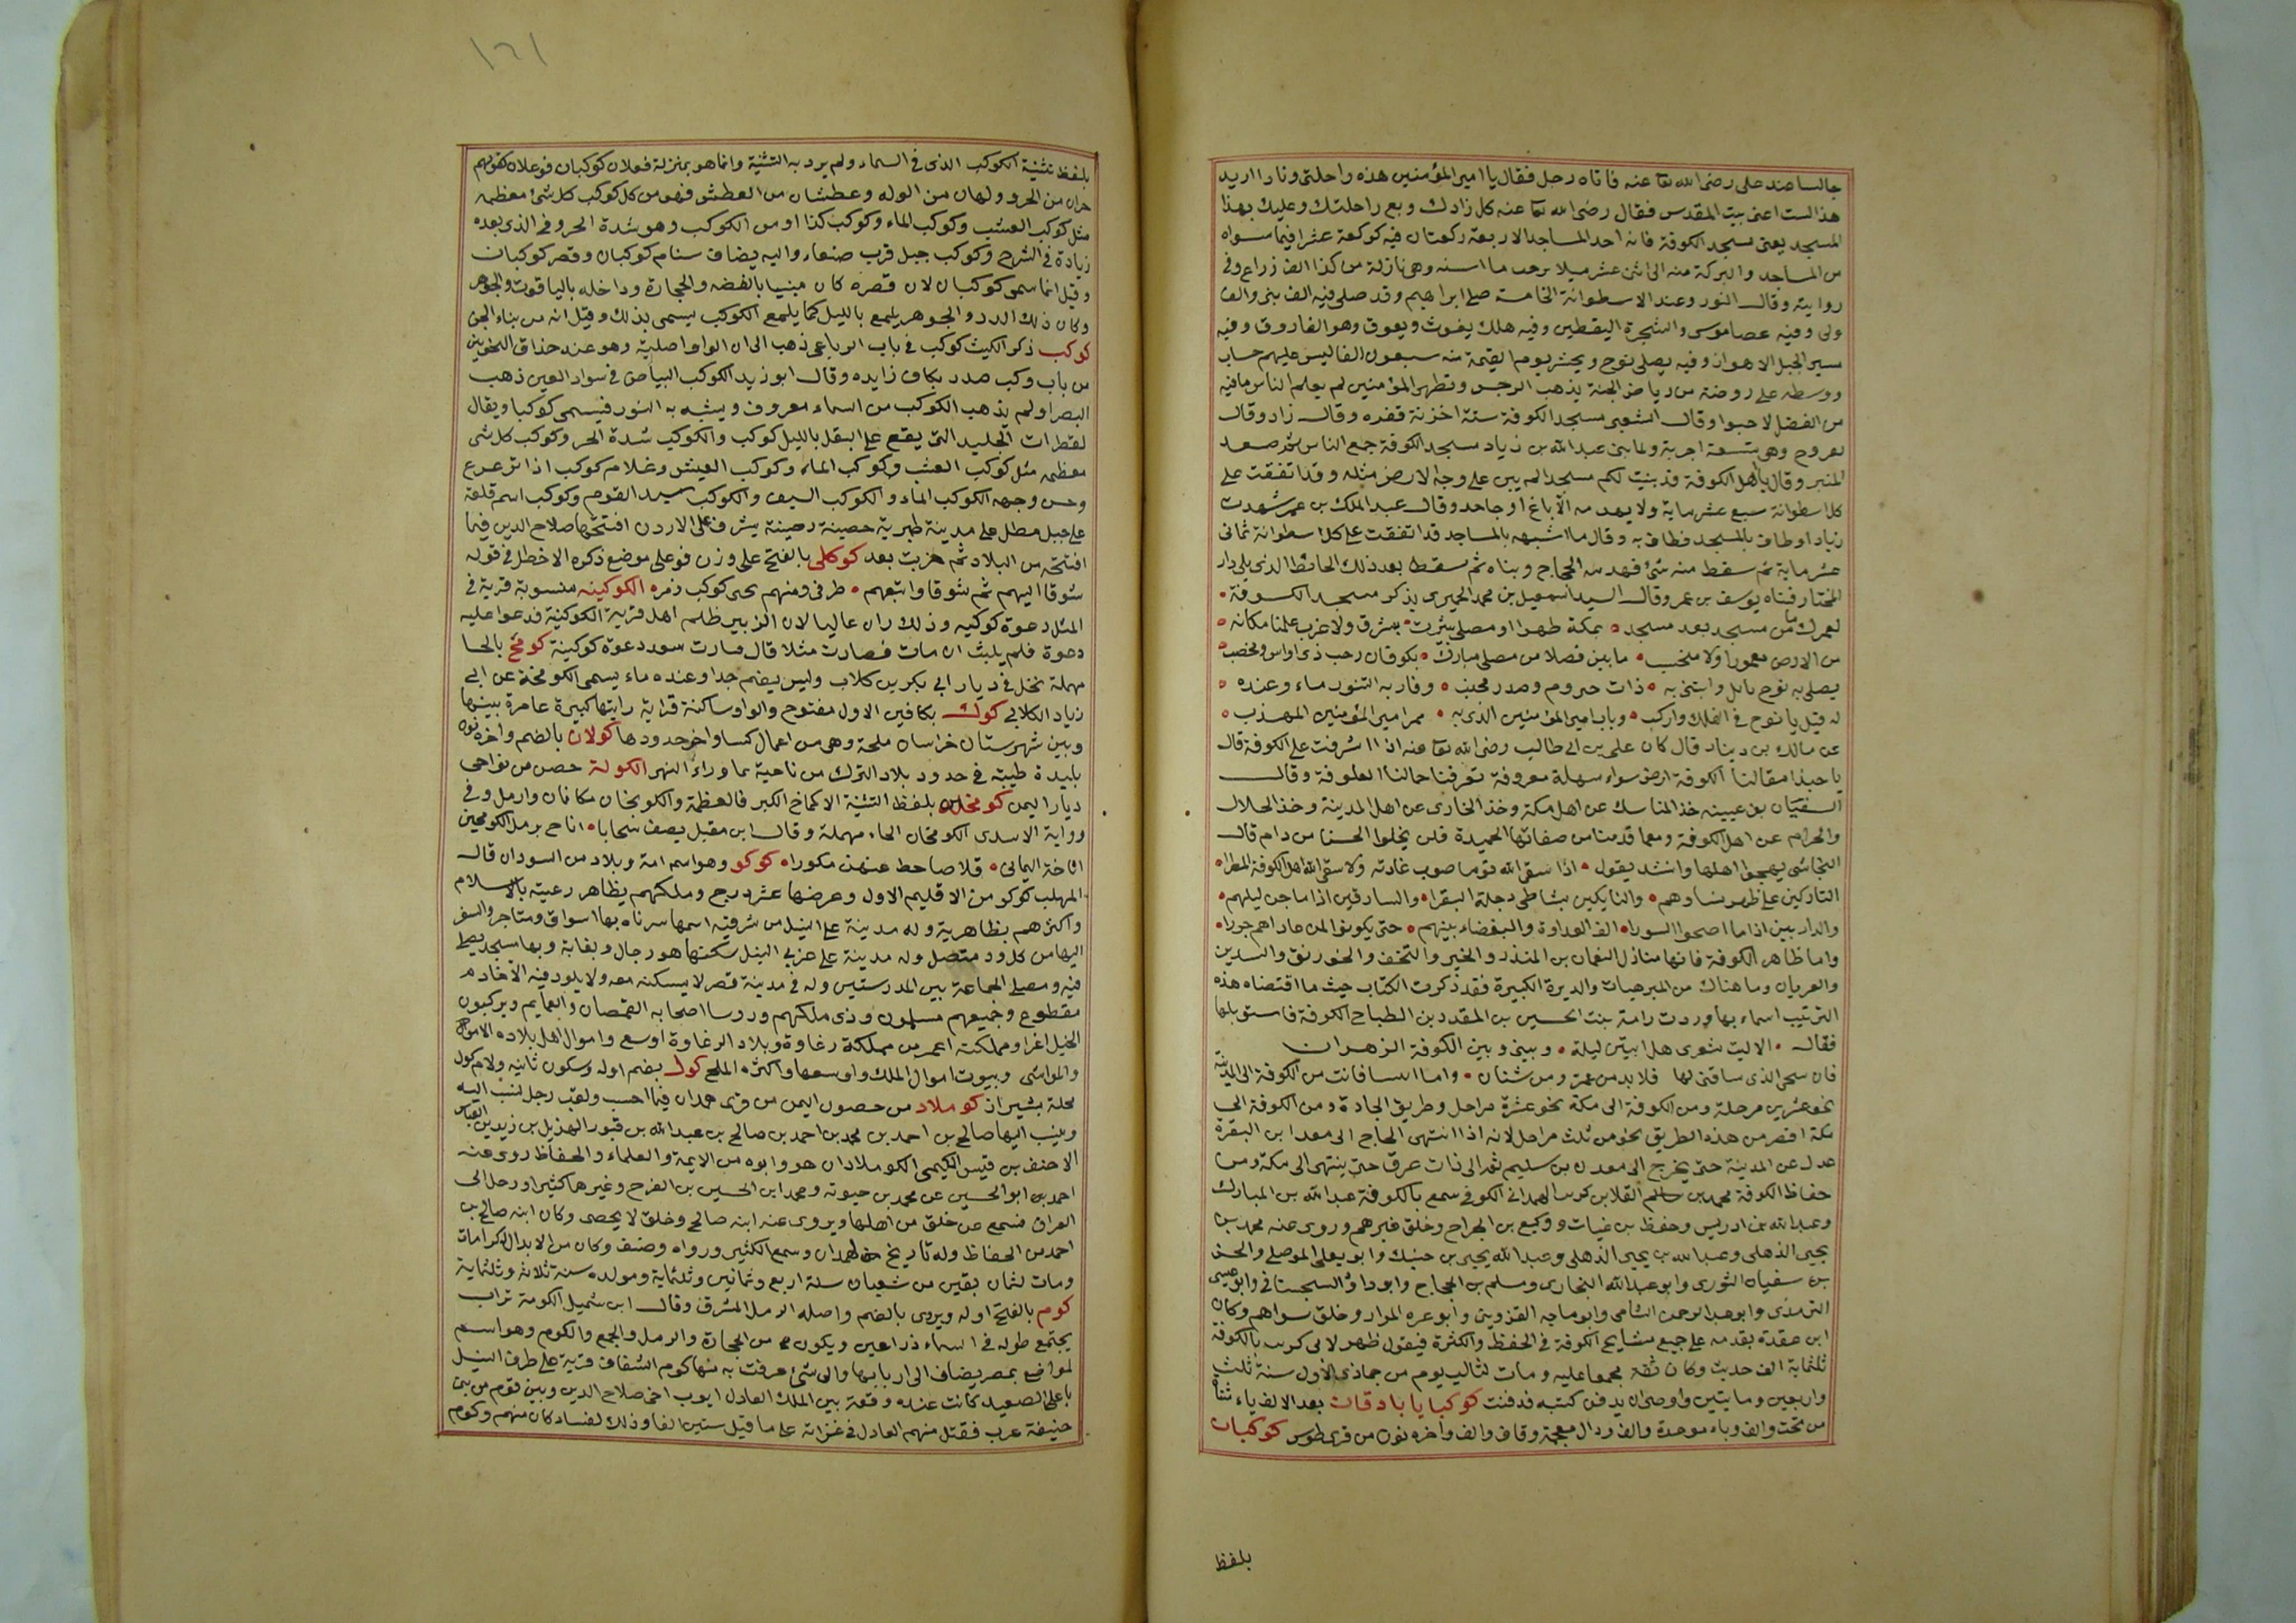 جالسا عند على رضى الله تعا عنه فاتاه رجل فقال يا امير المؤمنين هذه راحلتى وزادا اريد
هذا البيت اعنى بيت المقدس فقال رضى الله تعا عنه كل زادك وبع راحلتك وعليك بهذا
المسجد يعنى مسجد الكوفة فانه احد المساجد الاربعة ركعتان فيه كوكعة عشرا فيما سواه
من المساجد والبركة منه الى اثنى عشر ميلا من حيث ما اسنه وهى نازلة من كذا الف ذراع وفى
رواية وقال النور وعند الاسطوانة الخامسة صلى ابراهيم وقد صلى فيه الف نبى والف
ولى وفيه عصا موسى والشجرة اليقطين وفيه هلك يغوث ويعوق وهو الفاروق وفيه
سير الجبل الاهواز وفيه يصلى نوح ويحشر يوم القيمة منه سبعون الفا ليس عليهم حساب
ووسطه على روضة من رياض الجنة يذهب الرجس وتطهر المؤمنين لم يعلم الناس ما فيه
من الفضل لاحبوا وقال الشعبى مسجد الكوفة ستة اخزنة قفزه وقال زاد وقال
لعروج وهى تسعة اجربة ولما بنى عبد الله بن زياد مسجد الكوفة جمع الناس ثم صعد
المنبر وقال يا اهل الكوفة قد بنيت لكم مسجدا لم يبن على وجه الارض مثله وقد انفقت على
كل اسطوانة سبع عشر ماية ولا يهدمه الا باغ او جاحد وقال عبد الملك بن عمير شهدت
زيادا وطاف بالمسجد فطاف به وقال ما اشبهه بالمساجد قد انفقت على كل اسطوانة ثمانى
عشر ماية ثم سقط منه شئ فهدمه الحجاج وبناه ثم سقط بعد ذلك الحائط الذى يلى دار
المختار فبناه يوسف بن عمر وقال السيد اسمعيل بن محمد الحميرى يذكر مسجد الكوفة
لعمرك ما من مسجد بعد مسجد بمكة طهرا او مصلى بيثرب بشرق ولا غرب علمنا مكانه
من الارض معمورا ولا متجنب ما بين فصلا من مصلى مبارك بكوفان رحب ذى اواس ومخصب
يصلى به نوح تائل وابتنى به ذات حيروم وصدر محنب وفار به التنور ماء وعنده
له قيل يا نوح فى الفلك واركب وباب امير المؤمنين الذى به ممر امير المؤمنين المهذب
عن مالك بن دينار قال كان على بن ابى طالب رضى الله تعا عنه اذا اشرفت على الكوفة قال
يا حبذا مقالنا الكوفة ارض سواء سهلة معروفة تعرفنا جمالنا العلوفة وقال
السفيان بن عيينه خذ المناسك عن اهل مكة وخذ المغازى عن اهل المدينة وخذ الحلال
والحرام عن اهل الكوفة ومعما قدمنا من صفاتها الحميدة فلن يخلوا الحسنا من دام قال
النجاشى يهجوا اهلها وانشد يقول اذا سقى الله قوما صوب غادته فلا سقى الله اهل الكوفة المطرا
التاركين على ظهر نساوهم والنايكين بشاطى دجلة البقرا والسارقين اذا ما جن ليلهم
والدار بين اذا ما اصبحوا السورا الق العداوة والبغضاء بينهم حتى يكونوا لمن عاداهم جزرا
واما ظاهر الكوفة فانها منازل النعمان بن المنذر والحير والنجف والخورنق والسدير
والغريان وما هناك من المبرحيات والديرة الكبيرة فقد ذكرت الكتاب حيث ما اقتضاه هذه
الترتيب اسماء بها وردت رامة بنت الحسين بن المقدد بن الطباح الكوفة فاستوبلها
فقال الا ليت شعرى هل ابيتن ليلة وبينى وبين الكوفة الزهران
فان سحى الذى ساقنى لها فلا بد من عمر ومن شنان واما المسافات من الكوفة الى المدينة
نحو عشرين مرحلة ومن الكوفة الى مكة نحو عشرة مراحل وطريق الجادة ومن الكوفة الى
مكة اقصر من هذه الطريق بنحو من ثلث مراحل لانه اذا انتهى الحاج الى معدان البقرة
عدل عن المدينة حتى يخرج الى معدن بن سليم ثم الى ذات عرق حتى ينتهى الى مكة ومن
حفاظ الكوفة محمد بن سالم القلا بن كوسا الهمدانى الكوفى سمع بالكوفة عبد الله بن المبارك
وعبد الله بن ادريس وحفظ بن غياث ووكيع بن الجراح وخلق غيرهم وروى عنه محمد بن
يحيى الذهلى وعبد الله بن يحيى الذهلى وعبد الله يحيى بن حنبك وابو يعلى الموصلى والحسن
بن سفيان الثورى وابو عبد الله البخارى ومسلم بن الحجاج وابو داؤ السجستانى وابو عيسى
الترمذى وابو عبد الرحمن الشامى وابو ماجه القزوينى وابو عره المرار وخلق سواهم وكان
ابن عقدة يقدمه على جميع مشايخ الكوفة فى الحفظ والكثرة فيقول ظهر لابى كريب بالكوفة
ثلثماية الف حديث وكان ثقة مجمعا عليه ومات لثالب يوم من جماذى الاول سنة ثلث
واربعين ومايتين واوصى ان يدفن كتبه فدفنت كوكبايا باد قان بعد الالف ياء ثناة
من تحت والف وباء موحدة والف ودال معجمة وقاف والف واخره نون من قرى طوس كوكبان
بلفظ
١٦١
بلفظ تثنية الكوكب الذى فى السماء ولم يرد به التثنية وانما هو بمنزلة فعلان كوكبان فوعلان كقولهم
حران من الحر وولهان من الوله وعطشان من العطش فهو من كل كوكب كل شئ معظمه
مثل كوكب العشب وكوكب الماء وكوكب كذا او من الكوكب وهو شدة الحر وفى الذى بعده
زيادة فى الشرح وكوكب جبل قرب صنعاء واليه يضاف سنام كوكبان وقصر كوكبان
وقيل انما سمى كوكبان لان قصره كان مبنيا بالفضه والحجارة وداخله بالياقوت والجوهر
وكان ذلك الدر والجوهر يلمع بالليل كما يلمع الكوكب يسمى بذلك وقيل انه من بناء الجن
كوكب ذكر الليث كوكب فى باب الرباعى ذهب الى ان الواو اصلية وهو عند حذاق النحويين
من باب وكب صدر بكاف زايده وقال ابو زيد الكوكب البياض فى سواد العين ذهب
البصر او لم يذهب الكوكب من اسماء معروف ويشبه به النور فيسمى كوكبا ويقال
لقطرات الجليد التى يقع على البقل بالليل كوكب والكوكب شدة الحر وكوكب كل شى
معظمه مثل كوكب العشب وكوكب الماء وكوكب العيش وغلام كوكب اذا ترعرع
وحسن وجهه الكوكب الماء والكوكب السيف والكوكب سيد القوم وكوكب اسم قلعة
على جبل مطل على مدينة طبرية حصينة رصينة يشرف على الاردن افتتحها صلاح الدين فيما
افتتحه من البلاد ثم خربت بعد كوكلى بالفتح على وزن فوعلى موضع ذكره الاخطل فى قوله
شوقا اليهم ثم شوقا واتبعهم طرفى ومنهم بحى كوكب زمره الكوكينه منسوبة قرية فى
المثل دعوة كوكيه وذلك ان عاليا لان الزبير ظلم اهل قرية الكوكنية فدعوا عليه
دعوة فلم يلبث ان مات فصارت مثلا قال صارت سعدد دعوة كوكينة كومح بالحا
مهملة نخل فى ديار ابى بكر بن كلاب وليس بضم جدا وعنده ماء يسمى الكومخة عن ابى
زياد الكلابى كوك بكافين الاول مفتوح والواو ساكنة قراية رايتها كبيرة عامرة بينها
وبين شهرستان خراسان ملحة وهى من اعمال كسا واخر حدودها كولان بالضم واخره نون
بليدة طيبة فى حدود بلاد الترك من ناحية بما وراء النهر الكولة حصن من نواحى
ديار اليمن كومخان بلفظ التثنية الاكماخ الكبر فالعظمة والكوبخان مكانان وارمل وفى
ورواية الاسدى الكومخان الحاء مهملة وقال ابن مقبل يصف سحابا اناخ برمل الكومحين
اناخة اليمانى قلاصا حط عنهن مكورا كوكو وهو اسم امة وبلاد من السودان قال
المهلب كوكو من الاقليم الاول وعرضها عشر درج وملكهم يظاهر رعيته بالاسلام
واكثرهم بظاهرية وله مدينة على النيل من شرقيه اسمها سرناه بها اسواق ومتاجر والسفر
اليها من كل ود متصل وله مدينة على غربى النيل سكنها هو ورجال وبغابة وبها مسجد يصلى
فيه ومصلى الجماعة بين المدرستين وله فى مدينة قصر لا يسكنه معه ولا يلود فيه الا خادم
مقطوع وجميعهم مسلمون وذى ملكهم وروسا اصحابه القمصان والعمايم ويركبون
الخيل اغرا ومملكته اعمر من مملكة رغاوة وبلاد الرغاوة اوسع واموال اهل بلاده الاموال
والمواشى وبيوت اموال الملك واوسعها واكثره الملح كول بضم اوله وسكون ثانيه ولام كول
محلة بشيراز كوملاد من حصون اليمن من قرى همدان فيما احسب ولقب رجل نسب اليه
وينسب اليها صالح بن احمد بن محمد بن احمد بن صالح بن عبد الله بن قيس الهذيل بن زيد بن العباس
الاحنف بن قيس الكيمى الكوملادان هو وابوه من الايمة والعلماء والحفاظ روى عنه
احمد بن ابو الحسين عن محمد بن حيوته ومحمد ابن الحسين بن الفرج وغيرها كثيرا ورحل الى
العراق فسمع من خلق من اهلها ويروى عنه ابنه صالح وخلق لا يحصى وكان ابنه صالح بن
احمد من الحفاظ وله تاريخ همدان وسمع الكثير ورواه وصنف وكان من الابدال الكرامات
ومات لثمان بقين من شعبان سنة اربع وثمانين وثلثماية ومولده سنة ثلاث وثلثماية
كوم بالفتح اوله ويروى بالضم واصله الرمل المشرف وقال ابن شميل الكومة تراب
يجتمع طوله فى السماء ذراعين ويكون من الحجارة والرمل والجمع والكوم وهو اسم
لمواضع بمصر يضاف الى اربابها والى شئ عرفت به منها كوم الشقاف قرية على طرف النيل
باعلى الصعيد كانت عنده وقعة بين الملك العادل ايوب اخى صلاح الدين وبين قوم من بنى
حنيفة عرب فقتل منهم العادل فى غزاته على ما قيل ستين الفا وذلك لفساد كان منهم وكوم